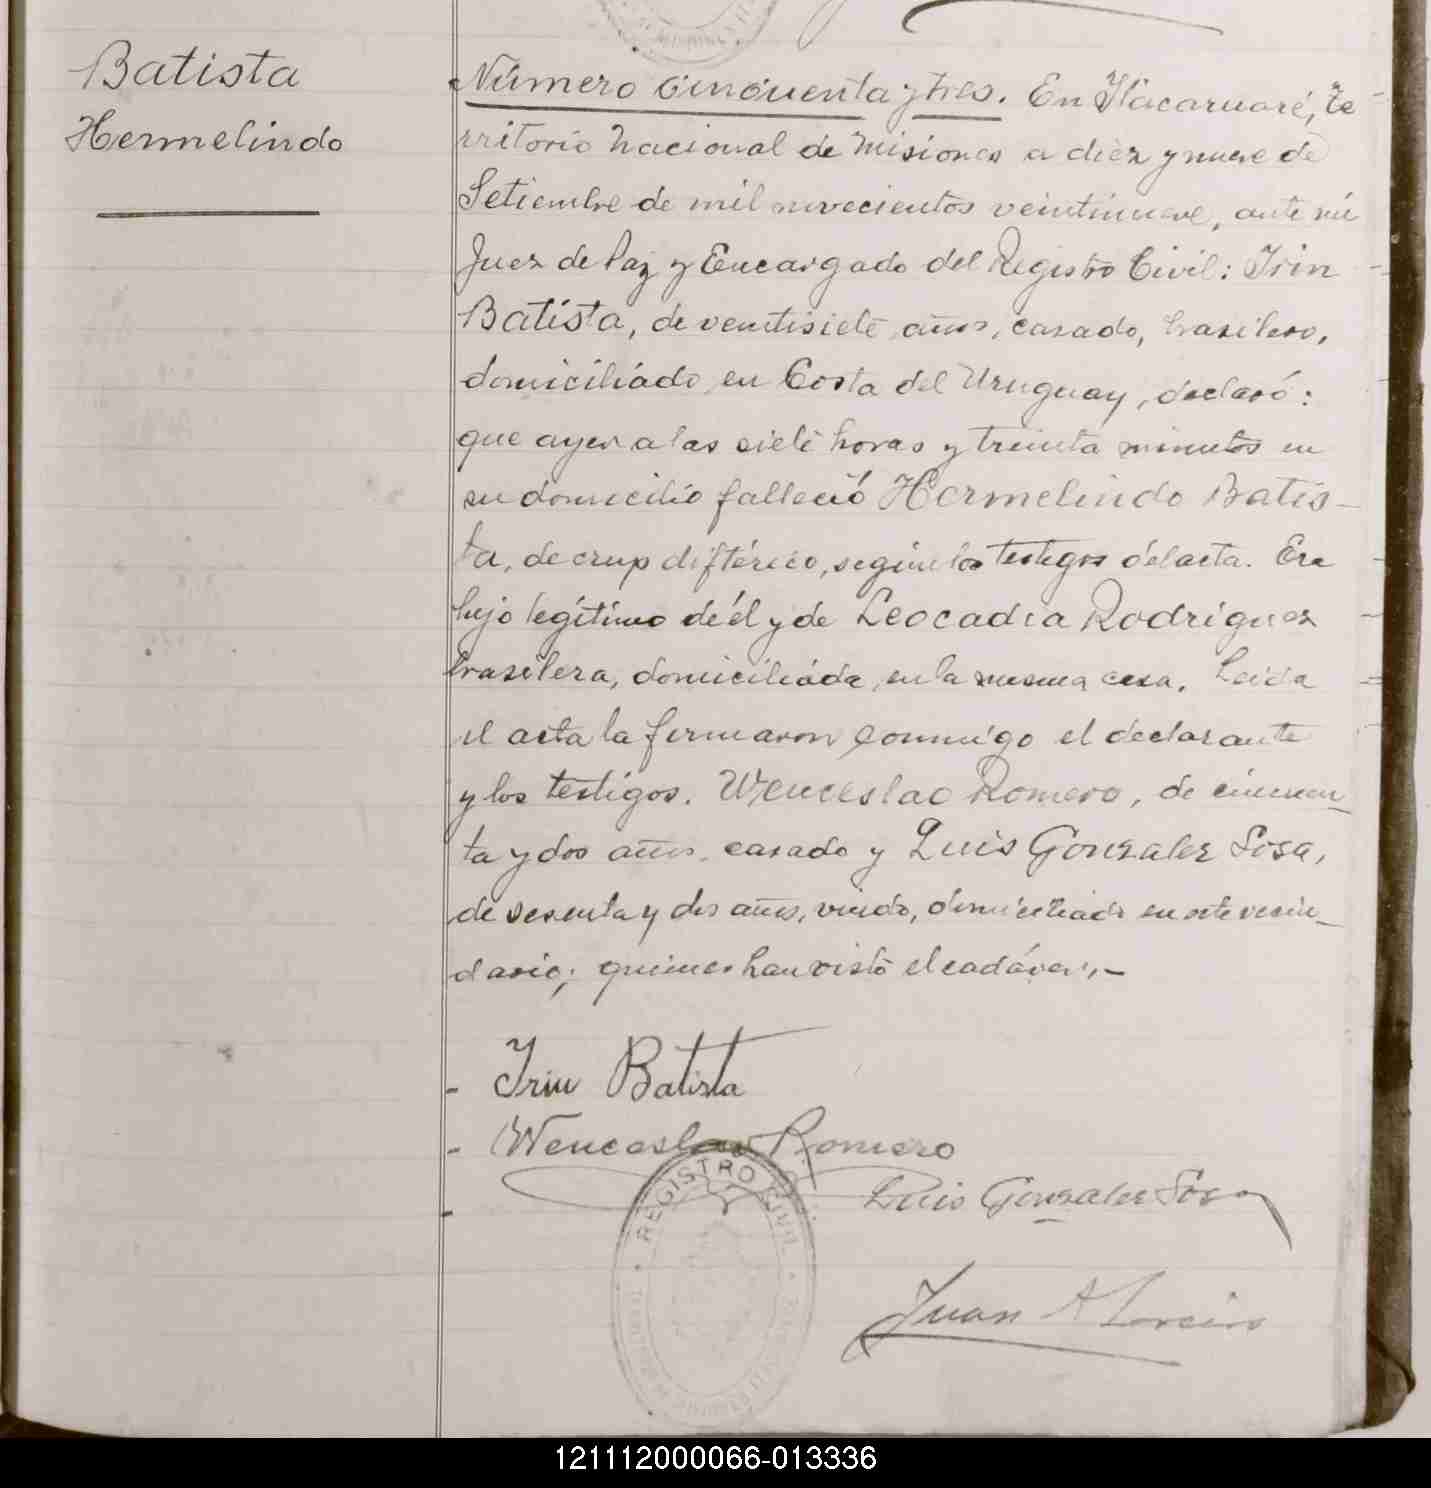 Batista
Hermelindo
Número cincuenta y tres. En Itacaruaré, te
rritorio nacional de Misiones a diez y nueve de
Setiembre de mil novecientos veintinueve, ante mí
Juez de Paz y Encargado del Registro Civil: Irin
Batista, de ventisiete años, casado, brasilero,
domiciliado en Costa del Uruguay, declaró:
que ayer a las siete horas y treinta minutos en
su domicilio falleció Hermelindo Batis-
ta, de crup diftérico, según los testigos del acta. Era
hijo legítimo de él y de Leocadia Rodriguez
brasilera, domiciliada en la misma casa. Leida
el acta la firmaron conmigo el declarante
y los testigos. Wenceslao Romero, de cincuen-
ta y dos años, casado y Luis Gonzalez Sosa,
de sesenta y dos años, viudo, domiciliado en este vecin-
dario; quienes han visto el cadáver.-
- Irin Batista
- Wenceslao Romero
REGISTRO CIVIL
Luis Gonzalez Sosa
Juan A
121112000066-013336